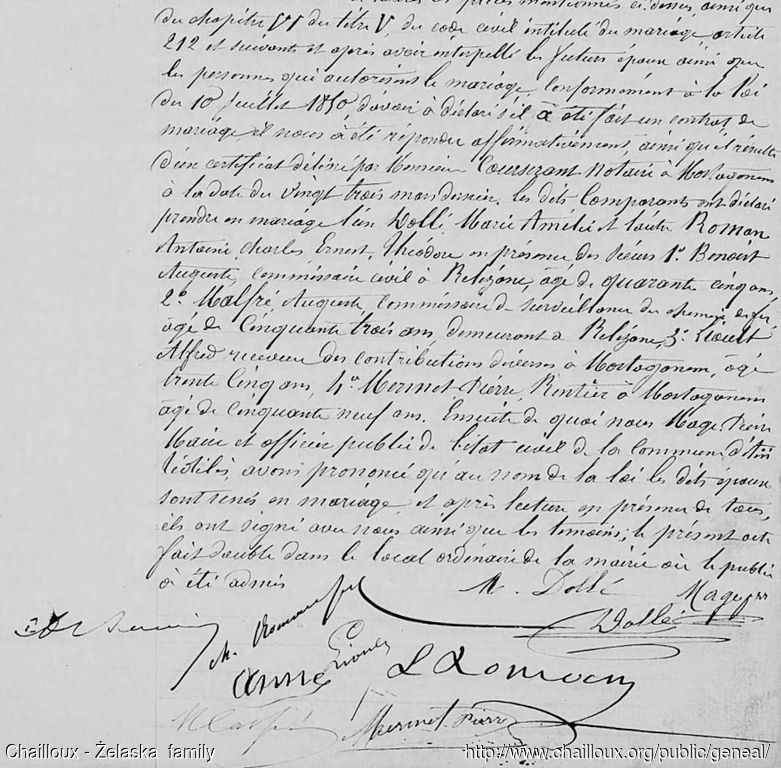 et pièces mentionnés ci-dessus, ainsi que
du chapitre VI du titre V, du code civil intitulé du mariage article
212 et suivants et après avoir interpellé les futurs époux ainsi que
les personnes qui autorisent le mariage, conformément à la loi
du 10 Juillet 1850 d'avoir à déclaré s'il à été fait un contrat de
mariage il nous à été répondu affirmativement, ainsi qu'il résulte
d'un certificat délivré par Monsieur Notaire à Mostaganem
à la date du vingt trois mars dernier. Les dits Comparants ont déclaré
prendre en mariage l'un Dollé, Marie Amélie et l'autre Roman
Antoine, Charles Ernest, Théodore en présence des sieurs 1º Benoist
Auguste, commissaire civil à Relizane, âgé de quarante cinq ans,
2º Malfré Auguste, Commissaire de surveillance du chemin de fer,
âgé de Cinquante trois ans, demeurant à Relizane, 3º
Alfred receveur des contributions diverses à Mostaganem, âgé
trente Cinq ans, 4º Mermet Pierre, Rentier à Mostaganem
âgé de cinquante neuf ans. Ensuite de quoi nous Mage Pierre
Maire et officier public de l'état civil de la commune d'Aïn
Tédélès, avons prononcé qu'au nom de la loi les dits époux
sont unis en mariage, et après lecture en présence de tous,
ils ont signé avec nous ainsi que les témoins; le présent acte
fait double dans le local ordinaire de la mairie où le public
à été admis
M. Dollé
Mage
Ch. Roman
Dollé
Anne
L Roman
Malfré
Mermet Pierre
Chailloux - Želaska family
http://www.chailloux.org/public/geneal/